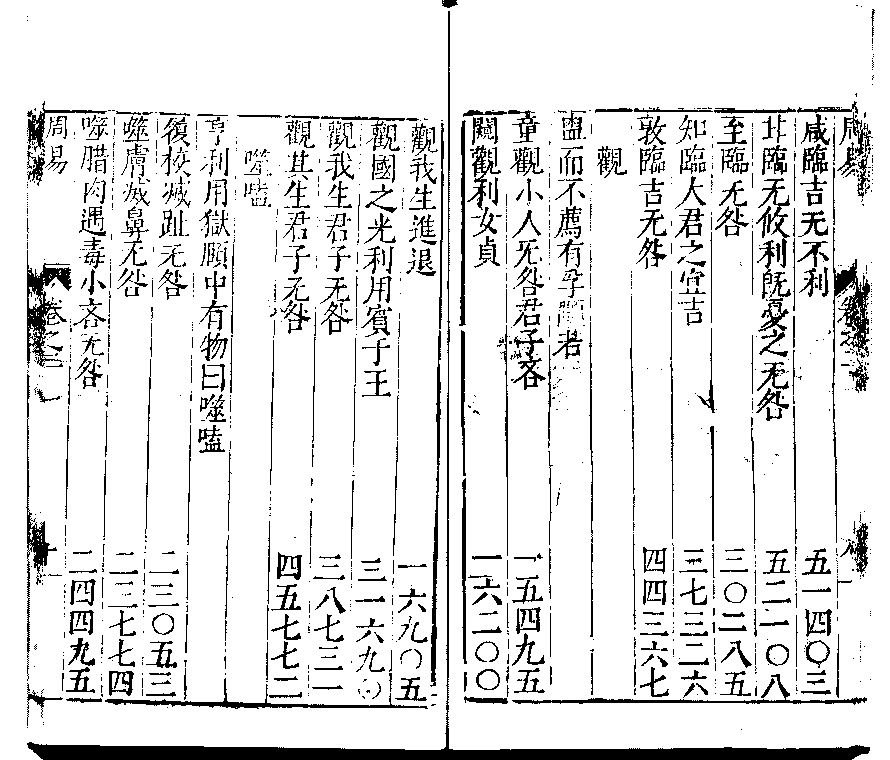 咸臨吉无不利 五一四〇三
甘臨无攸利旣憂之无咎 五二一〇八
至臨无咎 三〇二八五
知臨大君之宜吉 三七三二六
敦臨吉无咎 四四三六七
觀
盥而不薦有孚顒若
童觀小人无咎君子吝 一五四九五
闚觀利女貞 一六二〇〇
觀我生進退 一六九〇五
觀國之光利用賓于王 三一六九〇
觀我生君子无咎 三八七三一
觀其生君子无咎 四五七七二
噬嗑
亨利用獄頤中有物曰噬嗑
履校滅趾无咎 二三〇五三
噬膚滅鼻无咎 二三七七四
噬腊肉遇毒小吝无咎 二四四九五
周易 卷之二